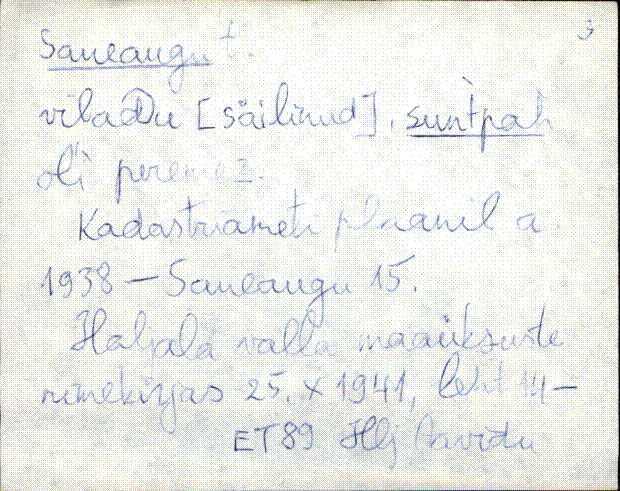 3
Saueaugu t.
viladDu [säilinud]. suǹtpah
oli peremez.
Kadastriameti plaanil a.
1938 — Saueaugu 15.
Haljala valla maaüksuste
nimekirjas 25. X 1941, leht 14 —
ET89 Hlj